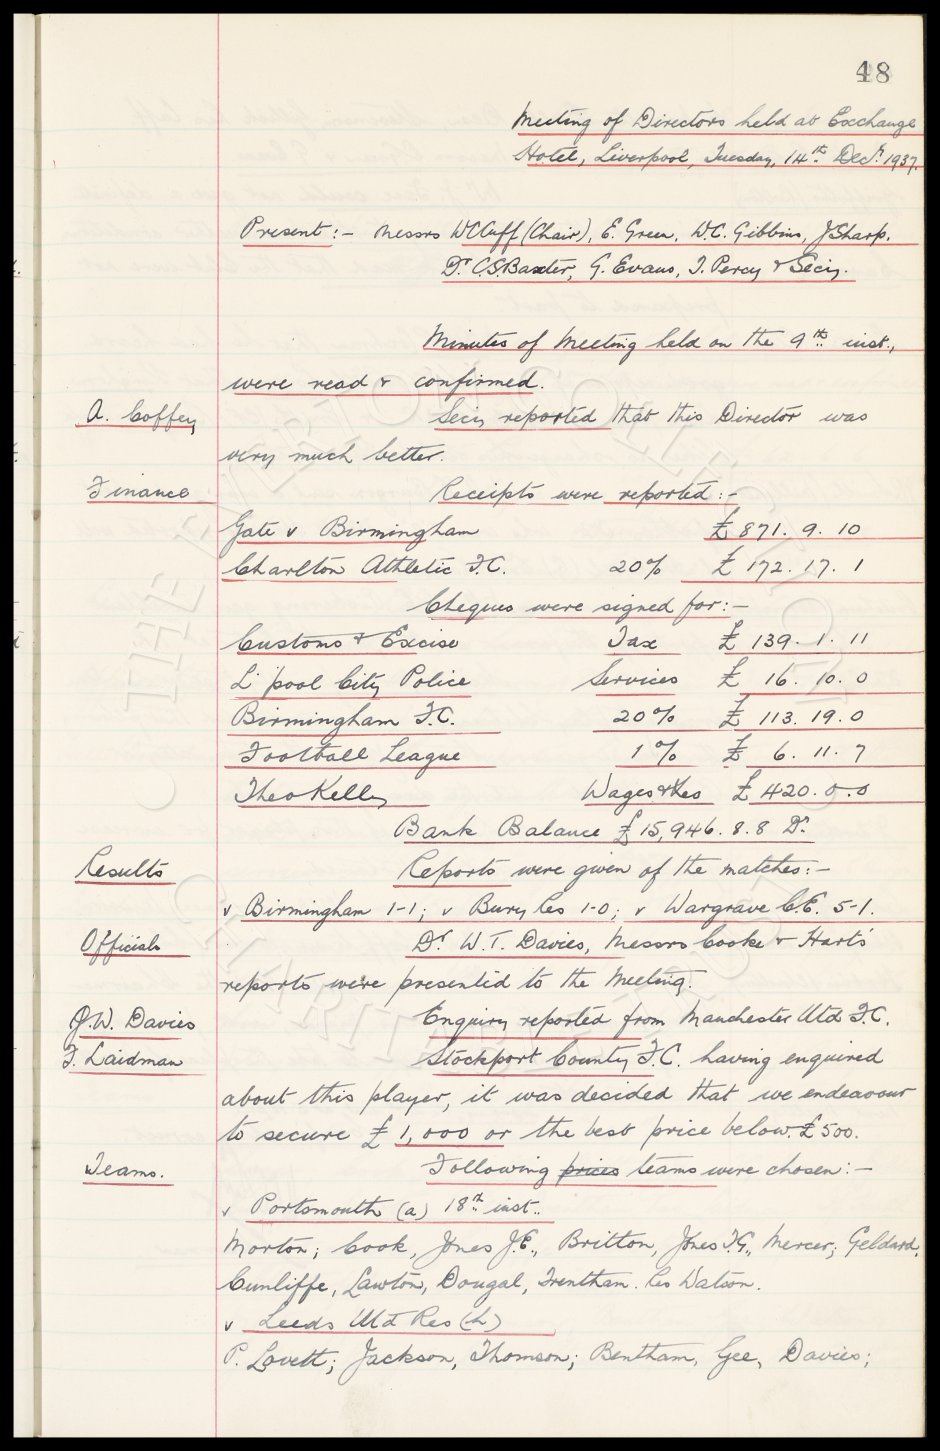 48
Meeting of Directors held at Exchange
Hotel, Liverpool, Tuesday, 14th Decr. 1937.
Present:- Messrs W C Cuff (Chair), E. Green, W.C. Gibbins, J Sharp,
Dr. C.S. Baxter, G. Evans, T. Percy & Secy.
Minutes of Meeting held on the 9th inst.,
were read & confirmed.
A. Coffey
Secy reported that this Director was
very much better.
Finance
Receipts were reported:-
Gate v Birmingham £ 871. 9. 10
Charlton Athletic F.C. 20% £ 172. 17. 1
Cheques were signed for:-
Customs & Excise Tax £ 139. 1. 11
L'pool City Police Services £ 16. 10. 0
Birmingham F.C. 20% £ 113. 19. 0
Football League 1% £ 6. 11. 7
Theo Kelly Wages &c £ 420. 0. 0
Bank Balance £ 15,946. 8. 8 Dr.
Results
Reports were given of the matches:-
v Birmingham 1-1; v Bury Res 1-0; v Wargrave C.E. 5-1.
Officials
Dr W.T. Davies, Messrs Cooke & Harts'
reports were presented to the Meeting.
J.W. Davies
Enquiry reported from Manchester Utd F.C.
F. Laidman
Stockport County F.C. having enquired
about this player, it was decided that we endeavour
to secure £ 1,000 or the best price below. £ 500.
Teams.
Following prices teams were chosen:-
v Portsmouth (a) 18th inst..
Morton; Cook, Jones J.E., Britton, Jones T.G., Mercer; Geldard,
Cunliffe, Lawton, Dougal, Trentham. Res Watson.
v Leeds Utd Res (h)
P. Lovett; Jackson, Thomson; Bentham, Gee, Davies;
© THE EVERTON COLLECTION CHARITABLE TRUST